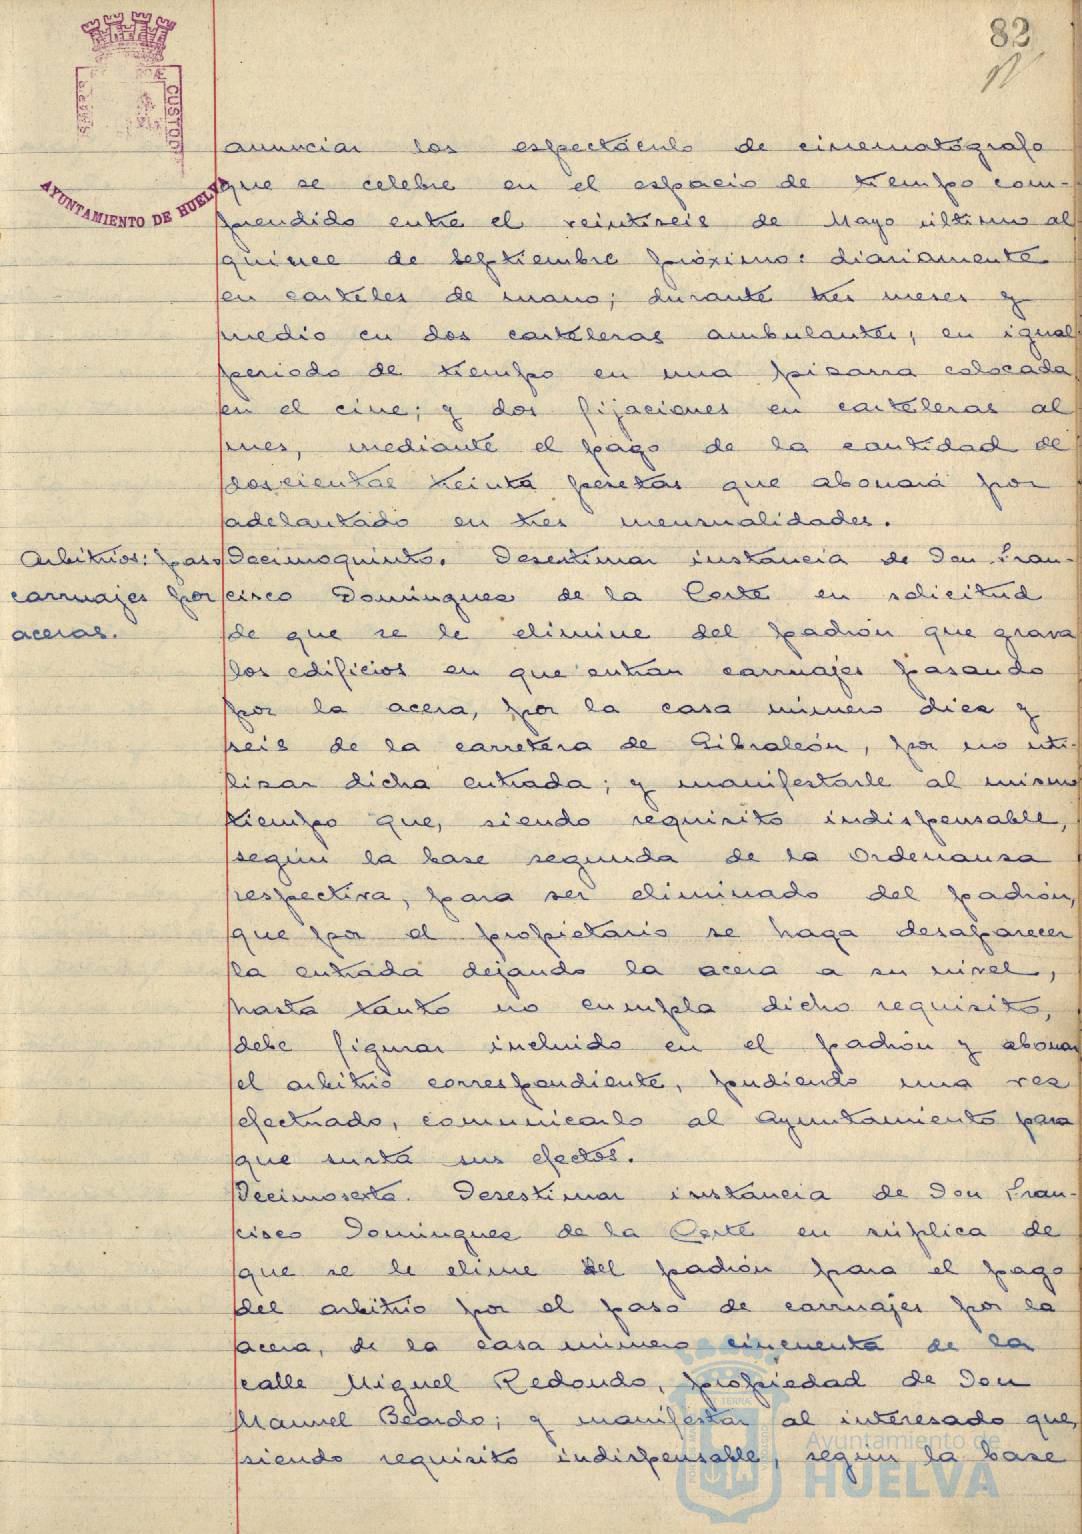 82
CUSTODI
AYUNTAMIENTO DE HUELVA
anunciar los espectáculo de cinematógrafo
que se celebre en el espacio de tiempo com-
prendido entre el veintiseis de Mayo último al
quince de Septiembre próximo: diariamente
en carteles de mano; durante tres meses y
medio en dos carteleras ambulantes, en igual
periodo de tiempo en una pizarra colocada
en el cine; y dos fijaciones en carteleras al
mes, mediante el pago de la cantidad de
doscientas treinta pesetas que abonará por
adelantado en tres mensualidades.
Arbitrios: paso
carruajes por
aceras.
Decimoquinto. Desestimar instancia de Don Fran-
cisco Dominguez de la Corte en solicitud
de que se le elimine del padrón que grava
los edificios en que entran carruajes pasando
por la acera, por la casa número diez y
seis de la carretera de Gibraleón, por no uti-
lizar dicha entrada; y manifestarle al mismo
tiempo que, siendo requisito indispensable,
según la base segunda de la Ordenanza
respectiva, para ser eliminado del padrón,
que por el propietario se haga desaparecer
la entrada dejando la acera a su nivel,
hasta tanto no cumpla dicho requisito,
debe figurar incluido en el padrón y abonar
el arbitrio correspondiente, pudiendo una vez
efectuado, comunicarlo al Ayuntamiento para
que surta sus efectos.
Decimosexto. Desestimar instancia de Don Fran-
cisco Dominguez de la Corte en súplica de
que se le elime del padrón para el pago
del arbitrio por el paso de carruajes por la
acera, de la casa número cincuenta de la
calle Miguel Redondo, propiedad de Don
Manuel Beardo; y manifestar al interesado que,
siendo requisito indispensable, según la base
Ayuntamiento de
HUELVA